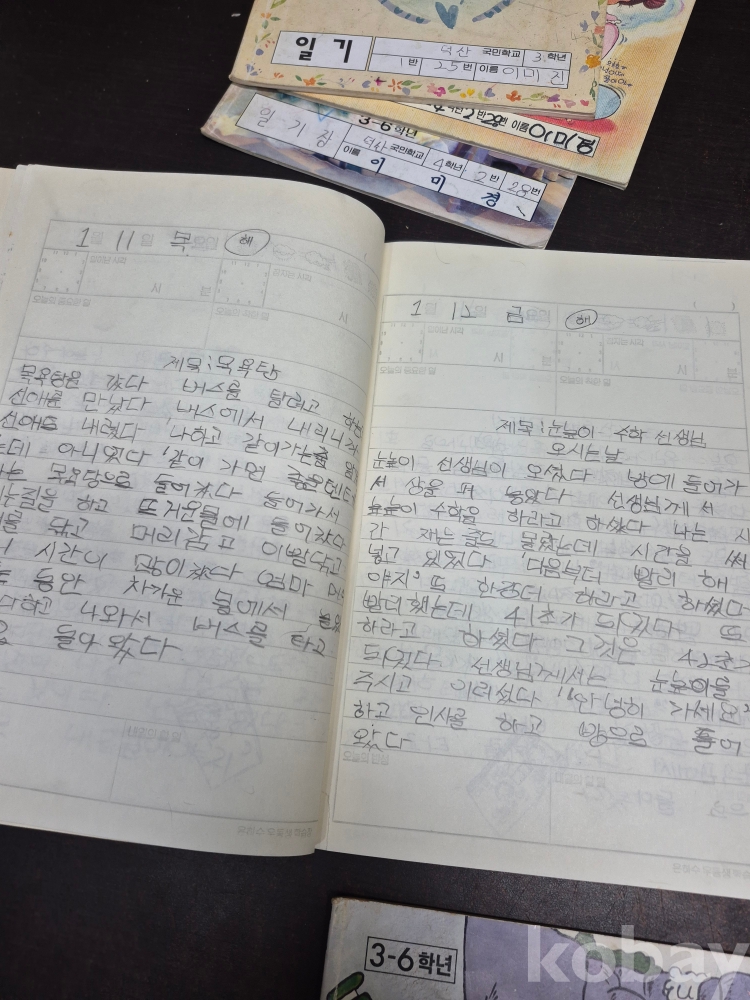 일기
덕산 국민학교 3 학년
1 반 25 번 이름 이미진
4 학년 2 반 28 번 이름 이미경
3-6 학년
일기장 덕산 국민학교 4 학년 2 반 28 번
이름 이미경
1 월 11 일 목 요일 해
제목: 목욕탕
목욕탕을 갔다 버스를 탈려고
선애를 만났다 버스에서 내리니까
선애도 내렸다 나하고 같이가는줄
는데 아니었다 같이 가면 좋을텐데
는 목욕탕으로 들어갔다 들어가서
을 하고 뜨거운물에 들어갔다
를 닦고 머리감고 이빨닦고
시간이 많이갔다 엄마
는 동안 차가운 물에서
다하고 나와서 버스를 타고
돌아왔다
1 월 12 일 금 요일 해
제목: 눈높이 수학 선생님
오시는날
눈높이 선생님이 오셨다 방에 들어가
서 상을 펴 놓았다 선생님께서
눈높이 수학을 하라고 하셨다 나는 시
간 재는 줄도 몰랐는데 시간을 써
넣고 있었다 "다음부터 빨리 해
야지" 또 한장더 하라고 하셨다
빨리했는데 41초가 되있다 또
하라고 하셨다 그것은 42초
되있다 선생님께서는 눈높이를
주시고 가셨다 "안녕히 가세요"
하고 인사를 하고 방으로 들어
왔다
3-6 학년
kobay